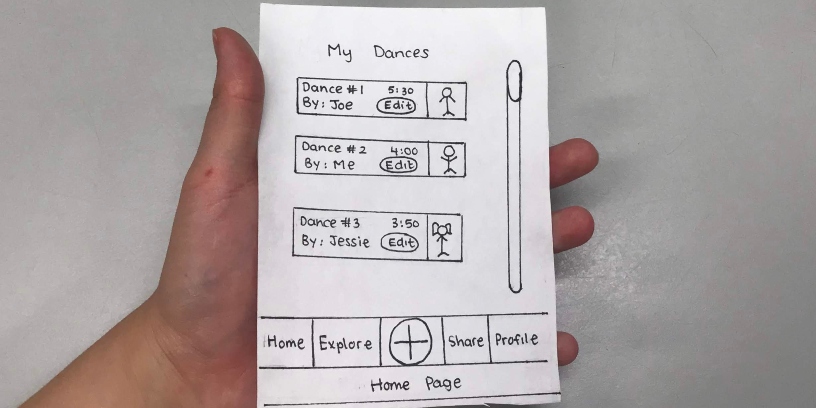 My Dances
Dance #1 5:30
By: Joe Edit
Dance #2 4:00
By: Me Edit
Dance #3 3:50
By: Jessie Edit
Home Explore Share Profile
Home Page